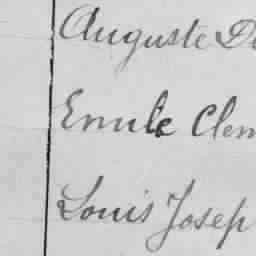 Auguste D
Emile Clem
Louis Joseph